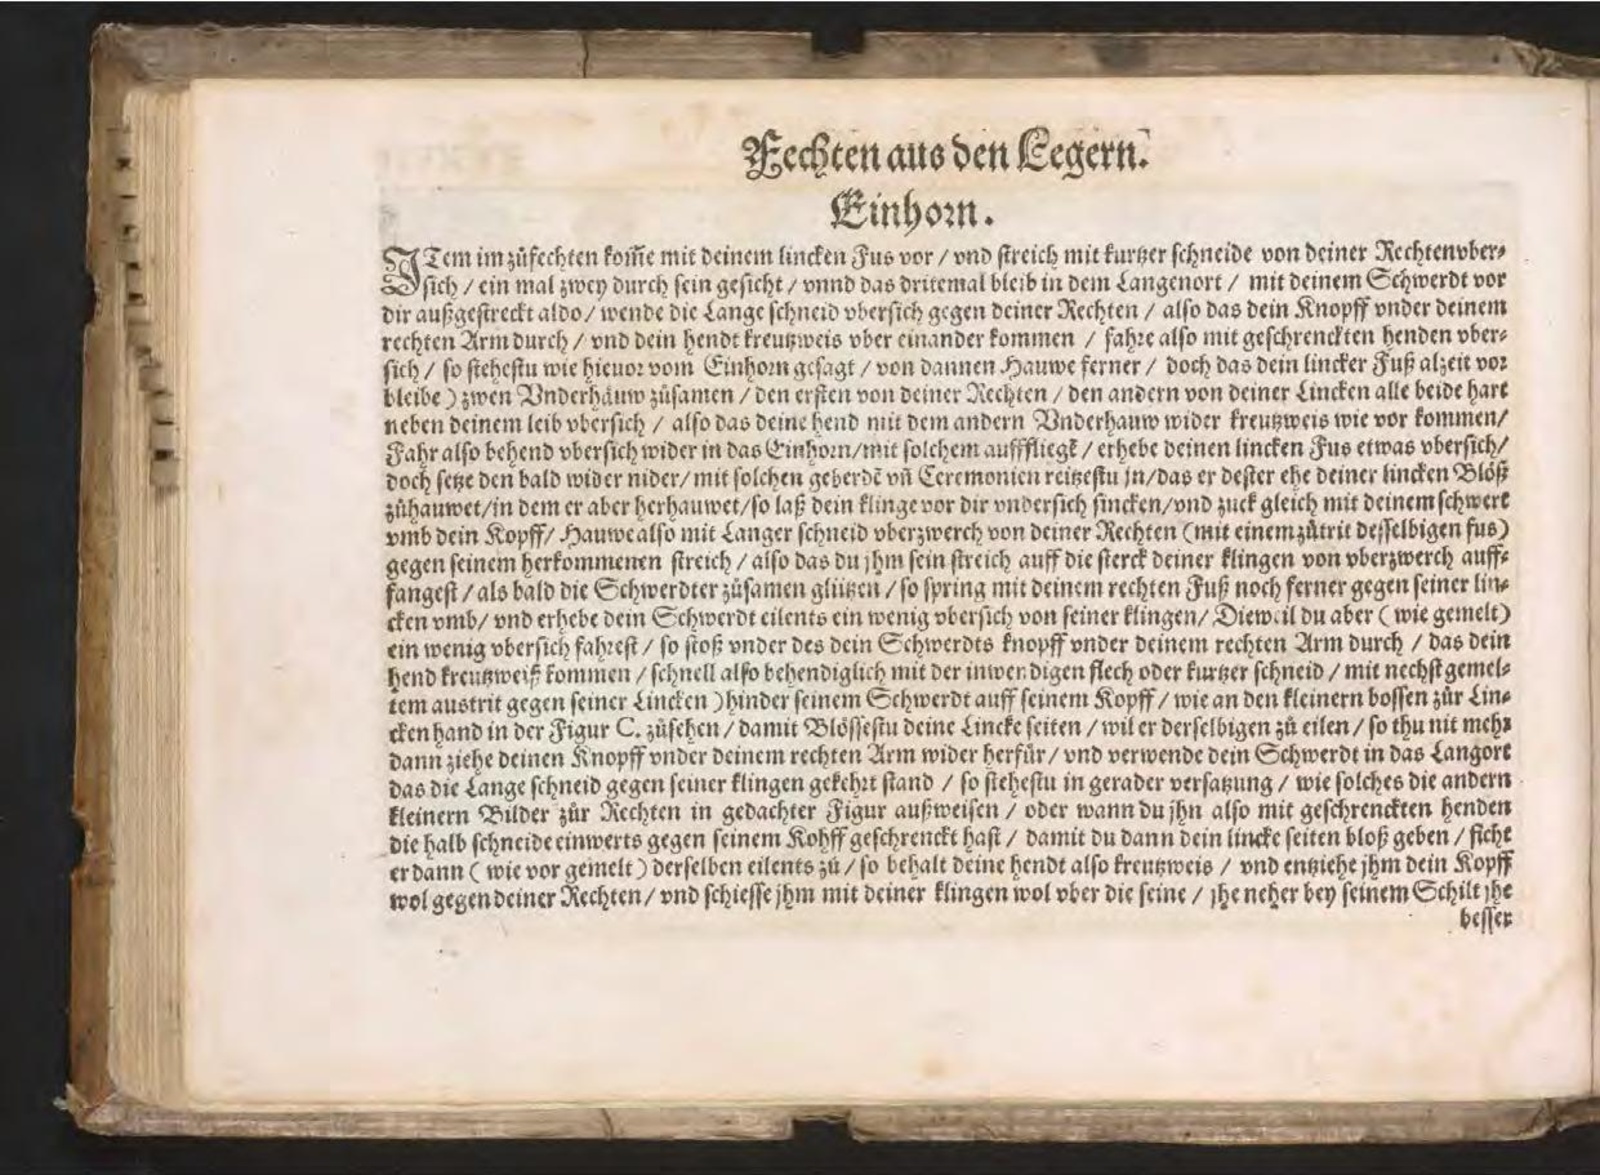 Fechten aus den Legern.
Einhorn.
ITem im zůfechten kom̃e mit deinem lincken Fus vor / vnd streich mit kurtzer schneide von deiner Rechten vber-
sich / ein mal zwey durch sein gesicht / vnnd das dritemal bleib in dem Langenort / mit deinem Schwerdt vor
dir außgestreckt aldo / wende die Lange schneid vbersich gegen deiner Rechten / also das dein Knopff vnder deinem
rechten Arm durch / vnd dein hendt kreutzweis vber einander kommen / fahre also mit geschrenckten henden vber-
sich / so stehestu wie hieuor vom Einhorn gesagt / von dannen Hauwe ferner / doch das dein lincker Fuß alzeit vor
bleibe ) zwen Vnderhäuw zůsamen / den ersten von deiner Rechten / den andern von deiner Lincken alle beide hart
neben deinem leib vbersich / also das deine hend mit dem andern Vnderhauw wider kreutzweis wie vor kommen /
Fahr also behend vbersich wider in das Einhorn / mit solchem aufffliegẽ / erhebe deinen lincken Fus etwas vbersich /
doch setze den bald wider nider / mit solchen geberdẽ vñ Ceremonien reitzestu jn / das er dester ehe deiner lincken Blöß
zůhauwet / in dem er aber herhauwet / so laß dein klinge vor dir vndersich sincken / vnd zuck gleich mit deinem schwert
vmb dein Kopff / Hauwe also mit Langer schneid vberzwerch von deiner Rechten (mit einem zůtrit desselbigen fus)
gegen seinem herkommenen streich / also das du jhm sein streich auff die sterck deiner klingen von vberzwerch auff-
fangest / als bald die Schwerdter zůsamen glützen / so spring mit deinem rechten Fuß noch ferner gegen seiner lin-
cken vmb / vnd erhebe dein Schwerdt eilents ein wenig vbersich von seiner klingen / Dieweil du aber ( wie gemelt)
ein wenig vbersich fahrest / so stoß vnder des dein Schwerdts knopff vnder deinem rechten Arm durch / das dein
hend kreutzweiß kommen / schnell also behendiglich mit der inwendigen flech oder kurtzer schneid / mit nechst gemel-
tem austrit gegen seiner Lincken ) hinder seinem Schwerdt auff seinem Kopff / wie an den kleinern bossen zůr Lin-
cken hand in der Figur C. zůsehen / damit Blössestu deine Lincke seiten / wil er derselbigen zů eilen / so thu nit mehr
dann ziehe deinen Knopff vnder deinem rechten Arm wider herfür / vnd verwende dein Schwerdt in das Langort
das die Lange schneid gegen seiner klingen gekehrt stand / so stehestu in gerader versatzung / wie solches die andern
kleinern Bilder zůr Rechten in gedachter Figur außweisen / oder wann du jhn also mit geschrenckten henden
die halb schneide einwerts gegen seinem Kohff geschrenckt hast / damit du dann dein lincke seiten bloß geben / ficht
er dann ( wie vor gemelt ) derselben eilents zů / so behalt deine hendt also kreutzweis / vnd entziehe jhm dein Kopff
wol gegen deiner Rechten / vnd schiesse jhm mit deiner klingen wol vber die seine / jhe neher bey seinem Schilt jhe
besser